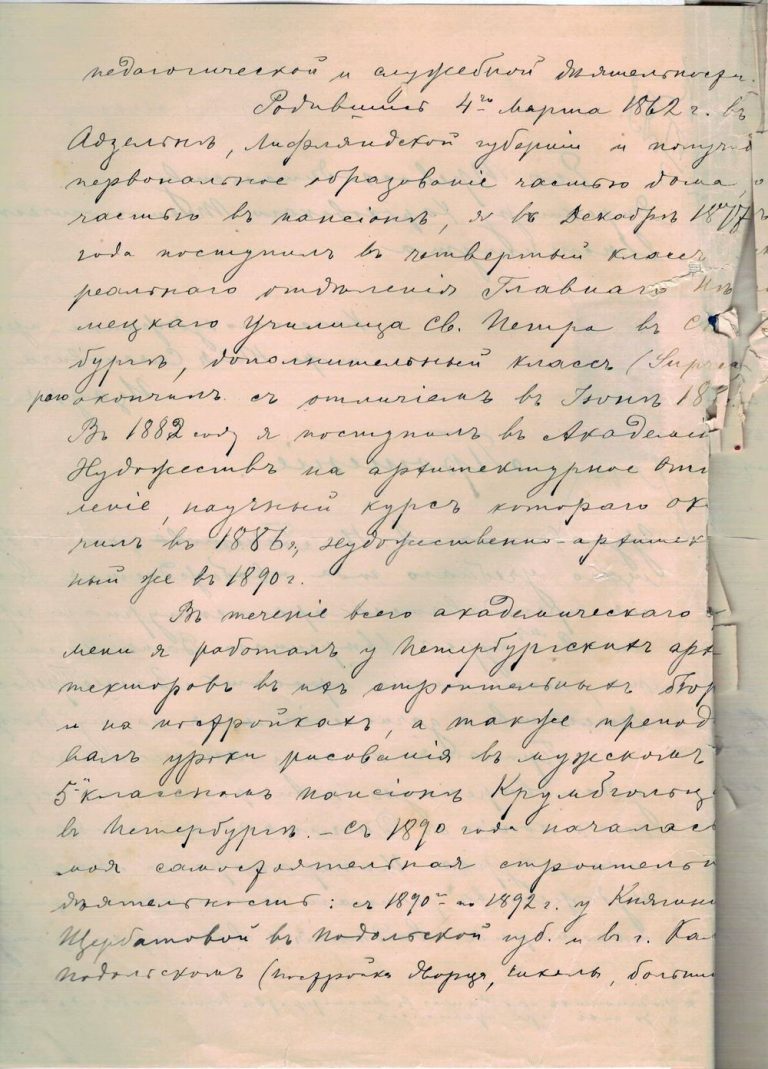 педагогической и служебной дѣятельности.
Родившись 4го Марта 1862 г. въ
Адзельнѣ, Лифляндской губерніи и получив
первональное образованіе частью дома,
частью въ пансіонѣ, я въ Декабрѣ 1877
года поступилъ въ четвертый классъ
реальнаго отдѣленія Главнаго Нѣ
мецкаго Училища Св. Петра въ С
бургѣ, дополнительный классъ (Supre
раго окончилъ съ отличіемъ въ Іюнѣ 18
Въ 1882 году я поступилъ въ Академі
Художествъ на архитектурное Отд
леніе, научный курсъ котораго ок
чилъ въ 1886 г., художественно-архитек
ный же въ 1890 г.
Въ теченіе всего академическаго
мени я работалъ у Петербургскихъ арх
текторовъ въ ихъ строительныхъ бюр
и на постройкахъ, а также препод
валъ уроки рисованія въ мужскомъ
5и классномъ пансіонѣ Крумбгольц
въ Петербургѣ. – Съ 1890 года началас
моя самостоятельная строительн
дѣятельность: съ 1890го по 1892 г. у Княгин
Щербатовой въ Подольской губ. и въ г. Кам
Подольскомъ (постройка дворца, школъ, больни